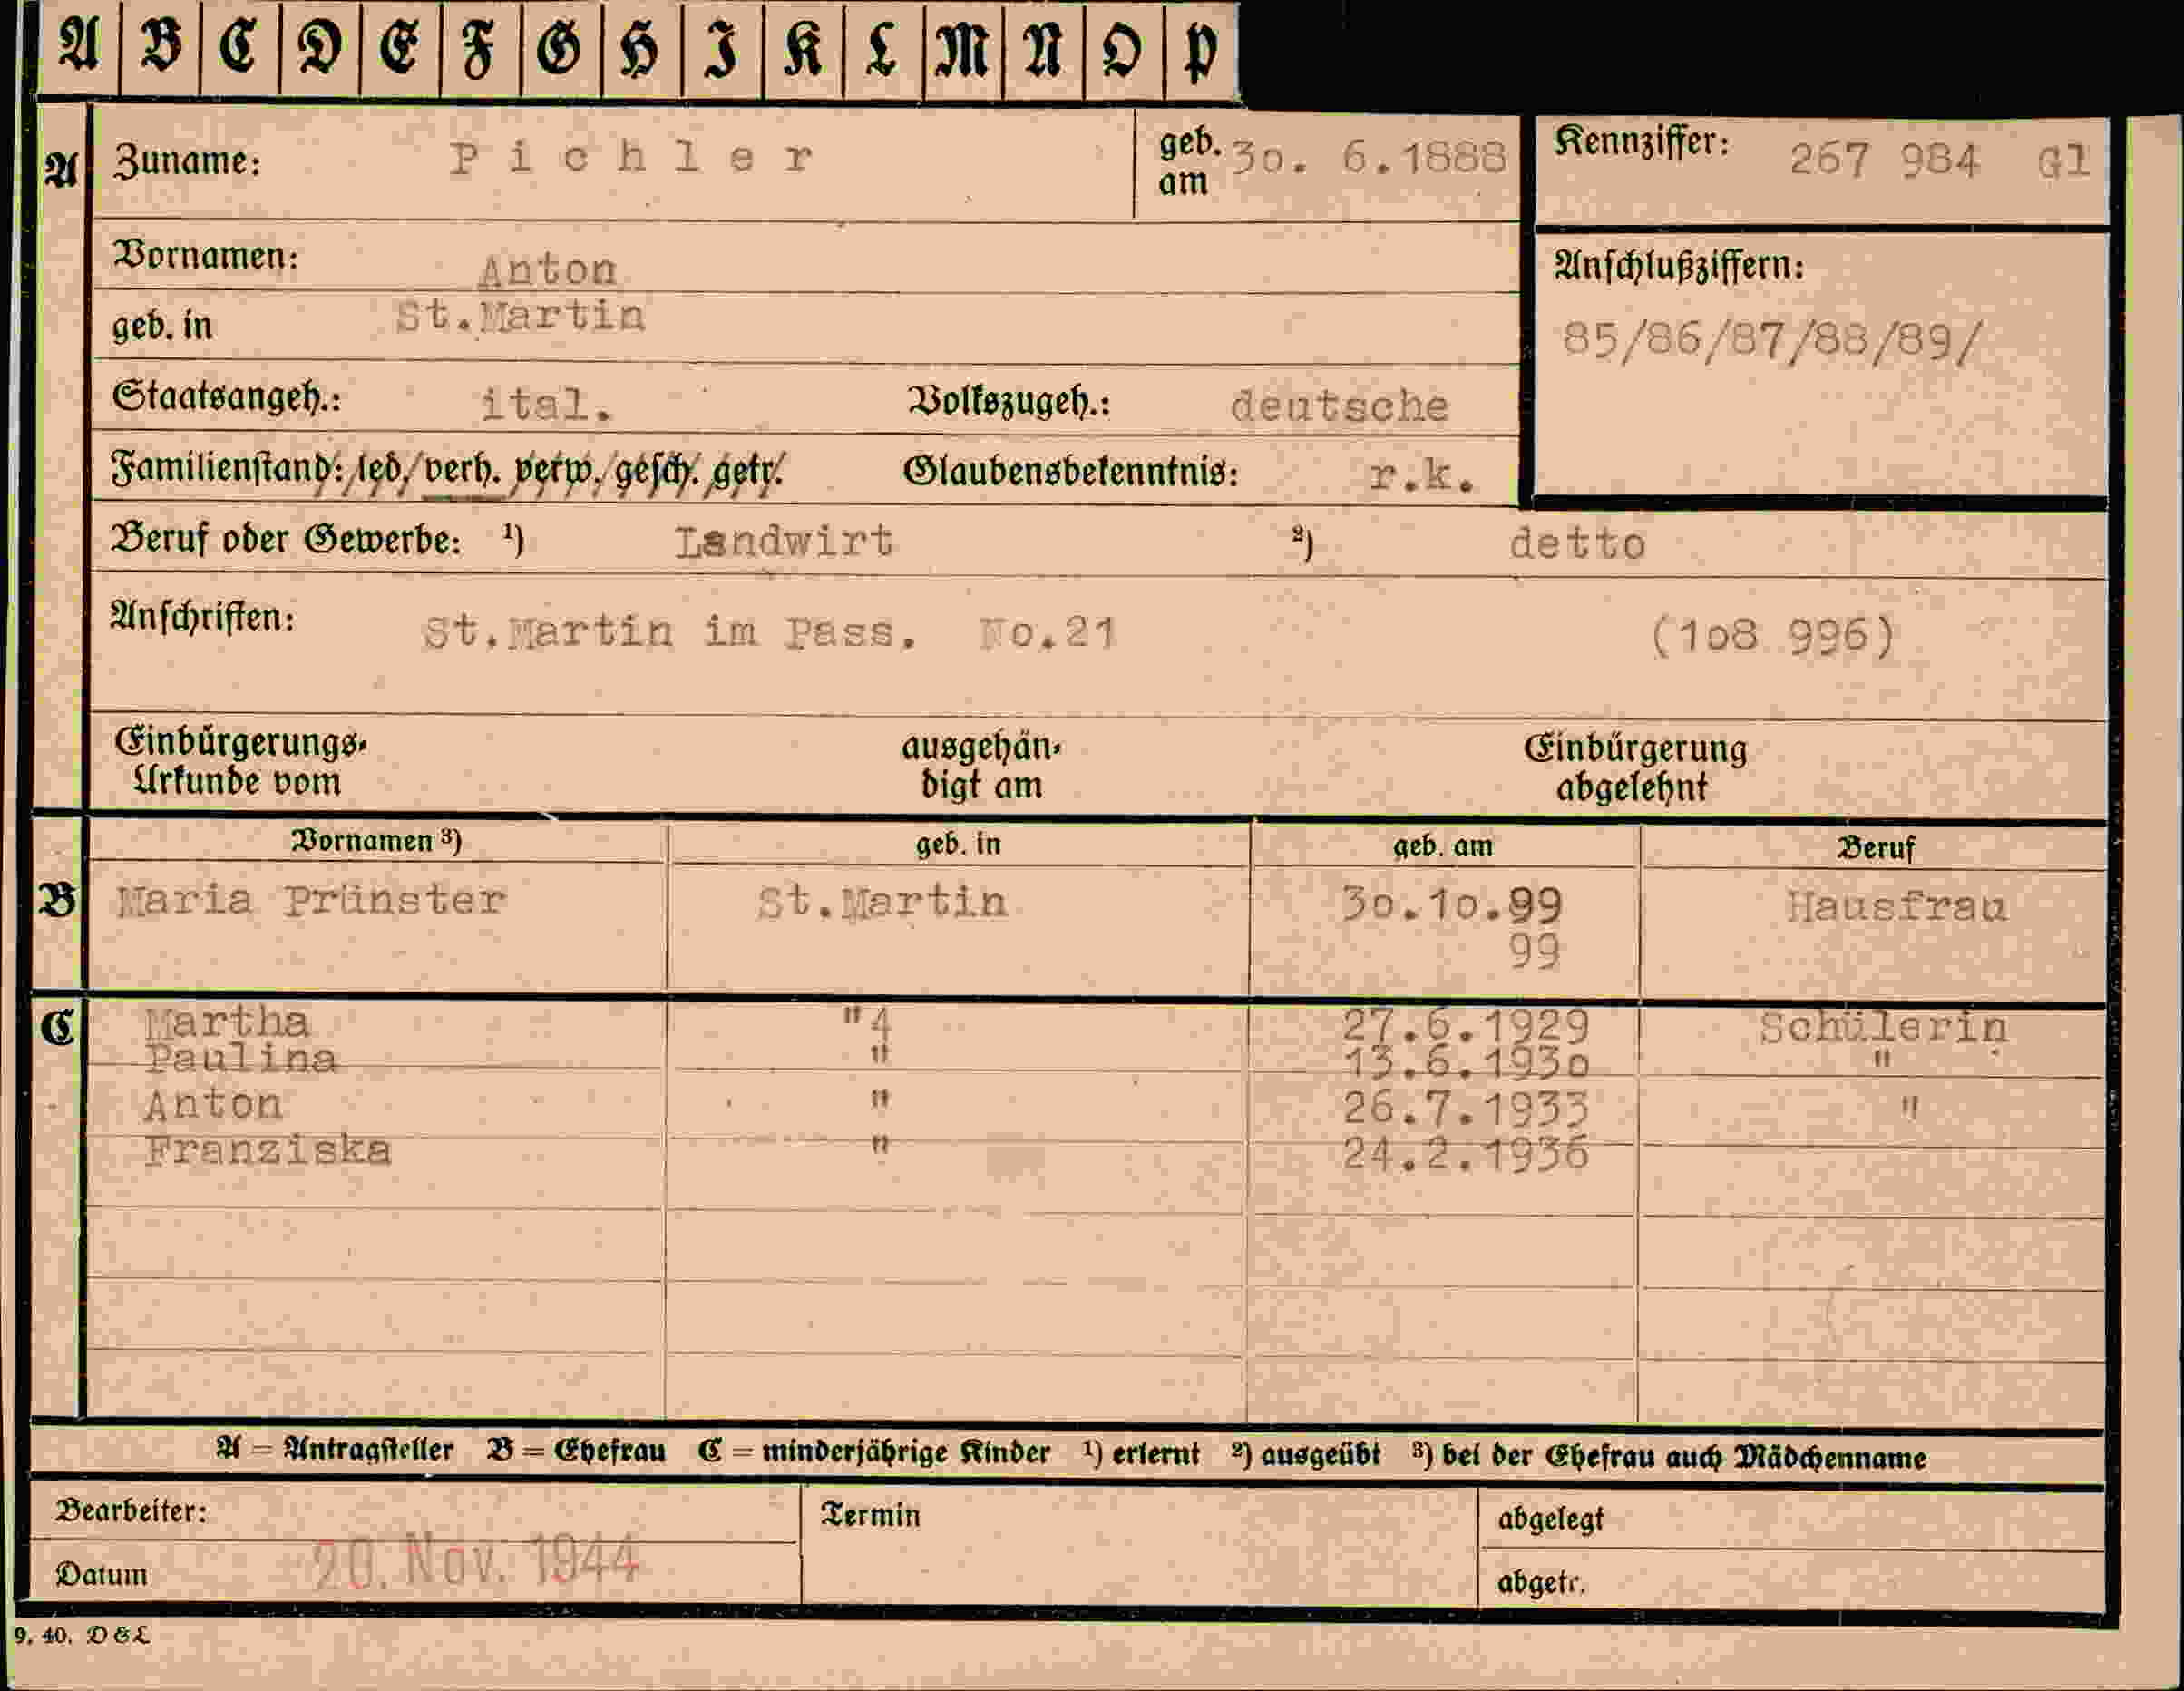 A B C D E F G H I K L M N O P
A Zuname: Pichler geb. am 30. 6.1888 Kennziffer: 267 984 Gl
Vornamen: Anton Anschlußziffern:
geb. in St.Martin 85/86/87/88/89/
Staatsangeh.: ital. Volkszugeh.: deutsche
Familienstand: led. verh. verw. gesch. getr. Glaubensbekenntnis: r.k.
Beruf oder Gewerbe: ¹) Landwirt ²) detto
Anschriften: St.Martin im Pass. No.21 (1o8 996)
Einbürgerungs- ausgehän- Einbürgerung
Urkunde vom digt am abgelehnt
Vornamen ³) geb. in geb. am Beruf
B Maria Prünster St.Martin 3o.1o.99 Hausfrau
99
C Martha "4 27.6.1929 Schülerin
Paulina " 13.6.193o "
Anton " 26.7.1933 "
Franziska " 24.2.1936
A = Antragsteller B = Ehefrau C = minderjährige Kinder ¹) erlernt ²) ausgeübt ³) bei der Ehefrau auch Mädchenname
Bearbeiter: Termin abgelegt
Datum 20. Nov. 1944 abgetr.
9. 40.